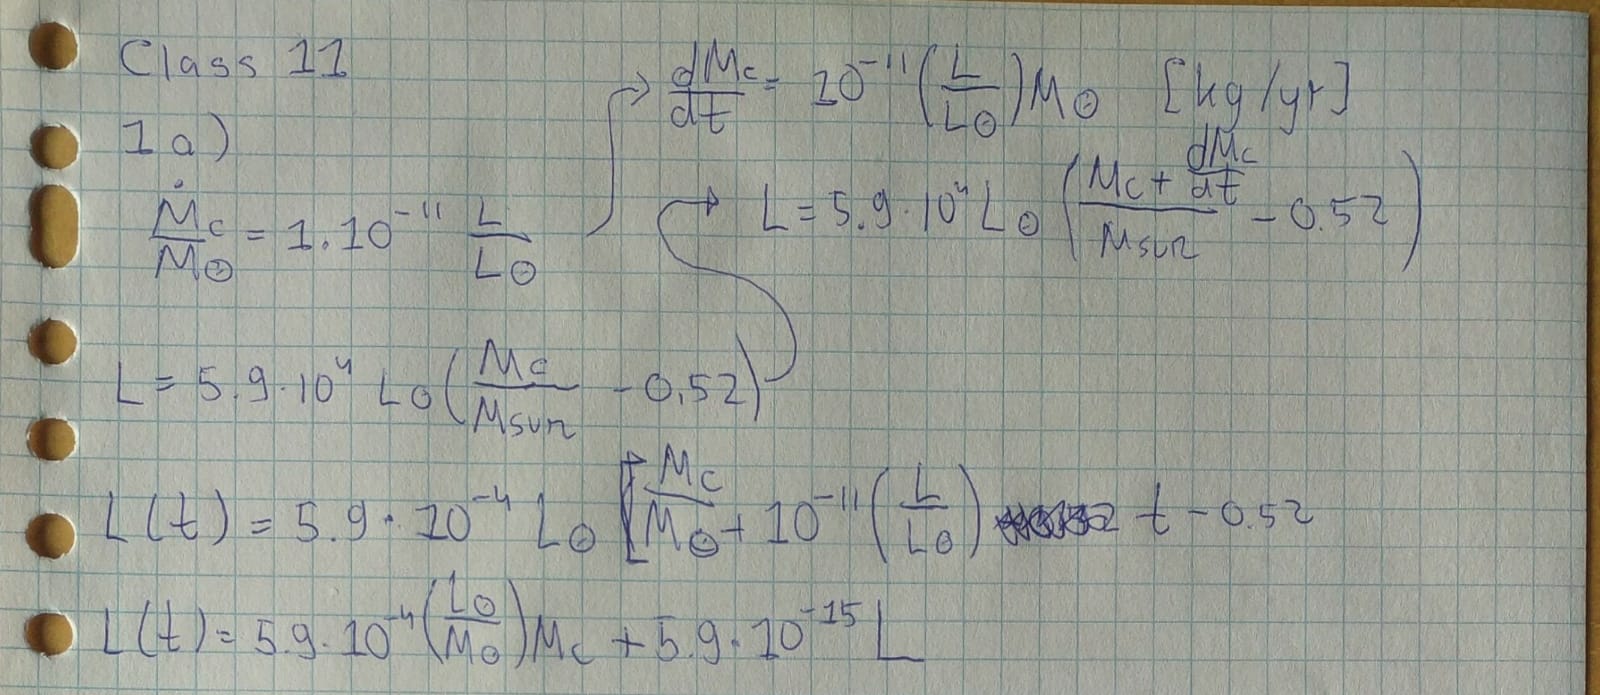 Class 11
1a)
Ṁc/M⊙ = 1.10^-11 L/L⊙
dMc/dt = 10^-11 (L/L⊙) M⊙ [kg/yr]
L = 5.9·10^4 L⊙ ((Mc + dMc/dt)/Msun - 0.52)
L = 5.9·10^4 L⊙ (Mc/Msun - 0,52)
L(t) = 5.9·10^-4 L⊙ [Mc/M⊙ + 10^-11 (L/L⊙) t - 0.52
L(t) = 5.9·10^-4 (L⊙/M⊙) Mc + 5.9·10^-15 L